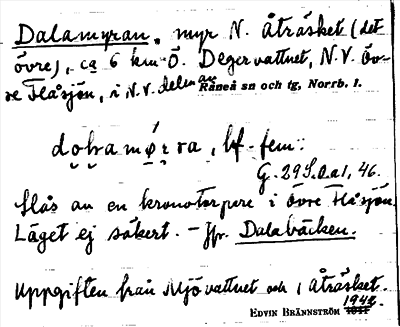 Dalamyran, myr N. Åträsket (det
övre), ca 6 km Ö. Degervattnet, N.V. Öv-
re Flåsjön, i N.V. delen av
Råneå sn och tg, Norrb. l.
bf. fem.
G. 29 46.
Slås av en kronotorpare i Övre Flåsjön
Läget ej säkert. - Jfr. Dalabäcken.
Uppgiften från Mjövattnet och i Åträsket.
1942.
EDVIN BRÄNNSTRÖM